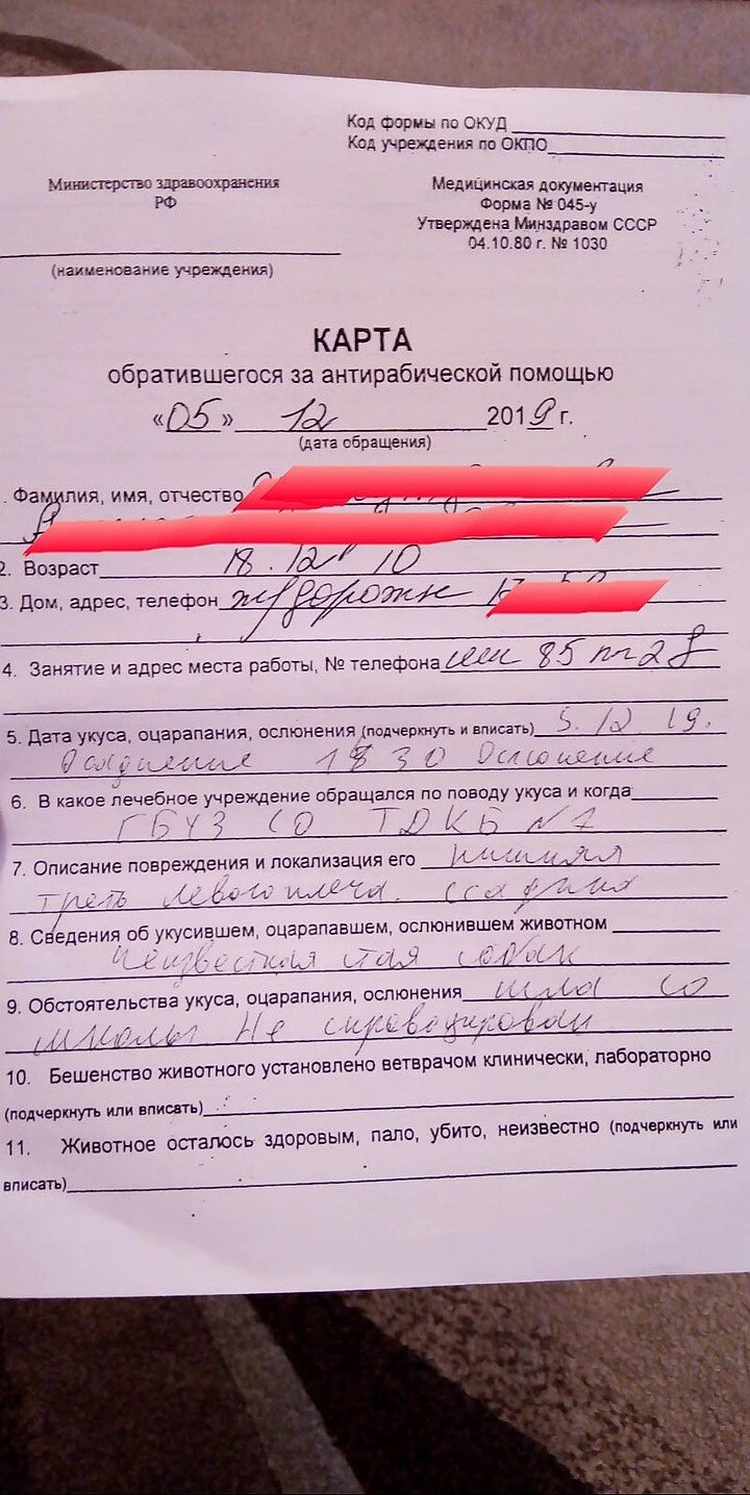 Код формы по ОКУД
Код учреждения по ОКПО
Министерство здравоохранения
РФ
(наименование учреждения)
Медицинская документация
Форма № 045-у
Утверждена Минздравом СССР
04.10.80 г. № 1030
КАРТА
обратившегося за антирабической помощью
«05» 12 2019 г.
(дата обращения)
. Фамилия, имя, отчество
2. Возраст 18.12 10
3. Дом, адрес, телефон ж/дорожн
4. Занятие и адрес места работы, № телефона шк 85
5. Дата укуса, оцарапания, ослюнения (подчеркнуть и вписать) 5.12 19.
1830 Ослюнение
6. В какое лечебное учреждение обращался по поводу укуса и когда
ГБУЗ СО ТДКБ №1
7. Описание повреждения и локализация его нижняя
треть левого плеча. ссадина
8. Сведения об укусившем, оцарапавшем, ослюнившем животном
Неизвестная стая собак
9. Обстоятельства укуса, оцарапания, ослюнения шла со
школы Не спровоцирован
10. Бешенство животного установлено ветврачом клинически, лабораторно
(подчеркнуть или вписать)
11. Животное осталось здоровым, пало, убито, неизвестно (подчеркнуть или
вписать)